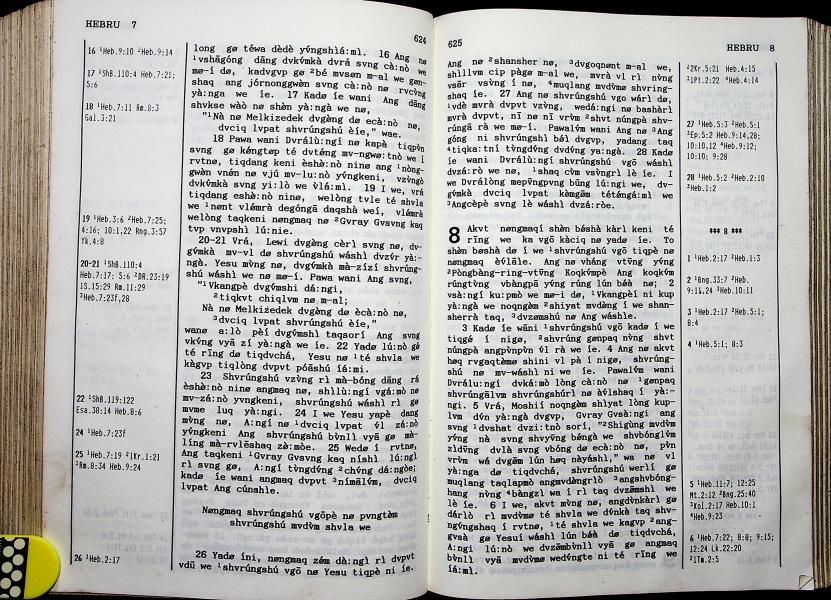 HEBRU 7
624
16 ¹Heb.9:10 ²Heb.9:14
17 ¹ShB.110:4 Heb.7:21;
5:6
18 ¹Heb.7:11 Rm.8:3
Gal.3:21
19 ¹Heb.3:6 ²Heb.7:25;
4:16; 10:1,22 Rng.3:57
Yk.4:8
20-21 ¹ShB.110:4
Heb.7:17; 5:6 ²DR.23:19
1S.15:29 Rm.11:29
³Heb.7:23f,28
22 ¹ShB.119:122
Esa.38:14 Heb.8:6
24 ¹Heb.7:23f
25 ¹Heb.7:19 ²1Kr.1:21
³Rm.8:34 Heb.9:24
26 ¹Heb.2:17
long gø téwa dèdè yv́ngshlá:mì. 16 Ang nø
¹vshāgóng dāng dvkv́mkà dvrá svng cà:nò we
mø-í dø, kadvgvp gø ²bé mvsøn m-al we gøn-
shaq ang jórnonggwèn svng cà:nò nø rvcv̀ng
yà:nga we íe. 17 Kadø íe wani Ang dāng
shvkse wàò nø shèn yà:ngà we nø,
"¹Nà nø Melkizedek dvgèng dø ecà:nò nø,
dvciq lvpat shvrúngshú èíe," wae.
18 Pawa wani Dvrálù:ngì nø kapà tiqpv̀n
svng gø kéngtøp té dvténg mv-ngwø:tnò we í
rvtnø, tiqdang keni èshè:nò ninø ang ¹nòng-
gwèn vnén nø vjú mv-lu:nò yv́ngkeni, vzv̀ngò
dvkv́mkà svng yi:lò we v̀lá:mì. 19 I we, vrá
tiqdang eshè:nò ninø, welòng tvle té shvla
we ¹nønt vlámrà degóngà daqshà weí, vlámrà
welòng taqkeni nøngmaq nø ²Gvray Gvsvng kaq
tvp vnvpshì lú:nie.
20-21 Vrá, Lewi dvgèng cèrì svng nø, dv-
gv́mkà mv-vl dø shvrúngshú wáshì dvzv́r yà:-
ngà. Yesu mv̀ng nø, dvgv́mkà mà-zízí shvrúng-
shú wáshì we nø mø-í. Pawa wani Ang svng,
"¹Vkangpè dvgv́mshì dá:ngì,
²tiqkvt chiqlvm nø m-al;
Nà nø Melkizedek dvgèng dø ècà:nò nø,
³dvciq lvpat shvrúngshú èíe,"
wanø a:lò pèì dvgv́mshì taqsorì Ang svng
vkv́ng vyā zí yà:ngà we íe. 22 Yadø lú:nò gø
té rīng dø tiqdvchá, Yesu nø ¹té shvla we
kàgvp tiqlòng dvpvt póāshú íá:mì.
23 Shvrúngshú vzv̀ng rì mà-bóng dāng rá
èshè:nò ninø angmaq nø, shìlù:ngì vgá:mò nø
mv-zá:nò yvngkeni, shvrúngshú wáshì rì gø
mvme luq yà:ngì. 24 I we Yesu yapè dang
mv̀ng nø, A:ngí nø ¹dvciq lvpat v́l zá:nò
yv́ngkeni Ang shvrúngshú bv̀nlì vyā gø mà-
líng mà-rvlēshaq zà:mòe. 25 Wedø í rvtnø,
Ang taqkeni ¹Gvray Gvsvng kaq níshì lú:ngì
rì svng gø, A:ngí tv̀ngdv́ng ²chv́ng dá:ngòe;
kadø íe wani angmaq dvpvt ³nímālv́m, dvciq
lvpat Ang cúnshle.
Nøngmaq shvrúngshú vgōpè nø pvngtèm
shvrúngshú mvdv̀m shvla we
26 Yadø íní, nøngmaq zém dà:ngì rì dvpvt
vdū we ¹shvrúngshú vgō nø Yesu tiqpè ní íe.
625
HEBRU 8
Ang nø ²shansher nø, ³dvgoqnønt m-al we,
shíllvm cip págø m-al we, mvrà vl rì nv̀ng
vsār vsv̀ng í nø, ⁴muqlang mvdv̀mø shvring-
shaq íe. 27 Ang nø shvrúngshú vgō wárì dø,
¹vdè mvrà dvpvt vzv̀ng, wedá:ngì nø bashàrì
mvrà dvpvt, ní nø ní vrv̀m ²shvt núngpà shv-
rúngā rà we mø-í. Pawalv́m wani Ang nø ³Ang
góng ni shvrúngshì báì dvgvp, yadang taq
⁴tiqka:tnì tv̀ngdv́ng dvdv́ng ya:ngà. 28 Kadø
íe wani Dvrálù:ngì shvrúngshú vgō wáshì
dvzá:rò we nø, ¹shaq cv̀m vsv̀ngrì lè íe. I
we Dvrálòng mepv̄ngpvng bǘng lú:ngì we, dv-
gv́mkà dvciq lvpat kàmgēm téténgá:mì we
³Angcèpè svng lè wáshì dvzá:ròe.
8 Akvt nøngmaqí shèn bèshà kàrì keni té
rīng we ka vgō kàciq nø yadø íe. To
shèn bøshà dø í we ¹shvrúngshú vgō tiqpè nø
nøngmaq èv́lāle. Ang nø vháng vtv̄ng yv́ng
²Pòngbàng-ring-vtv̄ng Koqkv́mpè Ang koqkv́m
rúngtv̀ng vbàngpà yv́ng rúng lún báà nø; 2
vsà:ngì ku:pmò we mø-í dø, ¹vkangpèì ni kup
yà:ngà we noqngèm ²shiyet mvdèng í we shan-
sherrà taq, ³dvzømshú nø Ang wáshle.
3 Kadø íe wāni ¹shvrúngshú vgō kadø í we
tiqgé í nigø, ²shvrúng gønpaq nv̀ng shvt
núngpà angpv̀npv̀n vl rà we íe. 4 Ang nø akvt
høq rvgaqtèmø shini vl pà í nigø, shvrúng-
shú nø mv-wáshì ni we íe. Pawalv́m wani
Dvrálu:ngì dvká:mò lòng cà:nò nø ¹gønpaq
shvrúngālv́m shvrúngshúrì nø àv́lshaq í yà:-
ngì. 5 Vrá, Moshiì noqngèm shìyat lòng kup-
lvm dv́n yà:ngà dvgvp, Gvray Gvsà:ngì ang
svng ¹dvshat dvzì:tnò sorì, "²Shìgùng mvdv̀m
yv́ng nà svng shvyv̄ng bángà we shvbónglv́m
zìdv̄ng dvlà svng vbóng dø ecà:nò nø, pv̀n
vrv̀m wà dvgēm lún høq nàyáshì," wa nø vl
yà:nga dø tiqdvchá, shvrúngshú werìì gø
muqlang taqlapmò angmvdèngrìò ³angshvbóng-
hang nv̀ng ⁴bàngzì wa í rì taq dvzømshì we
lè íe. 6 I we, akvt mv̀ng nø, angdv̀nkàrì gø
dárìò rì mvdv̀mø té shvla we dv́nkà taq shv-
ngv́ngshaq í rvtnø, ¹té shvla we kagvp ²ang-
gvsà gø Yesuí wáshì lún báà dø tiqdvchá,
A:ngì lú:nò we dvzømbv̀nlì vyā gø angmaq
bv̀nlì vyā mvdv̀mø wedv́ngte ni té rīng we
íá:mì.
²2Kr.5:21 Heb.4:15
³1Pt.2:22 ⁴Heb.4:14
27 ¹Heb.5:3 ²Heb.5:1
³Ep.5:2 Heb.9:14,28;
10:10,12 ⁴Heb.9:12;
10:10; 9:28
28 ¹Heb.5:2 ²Heb.2:10
³Heb.1:2
*** 8 ***
1 ¹Heb.2:17 ²Heb.1:3
2 ¹Bng.33:7 ²Heb.
9:11,24 ³Heb.10:11
3 ¹Heb.2:17 ²Heb.5:1;
8:4
4 ¹Heb.5:1; 8:3
5 ¹Heb.11:7; 12:25
Mt.2:12 ²Bng.25:40
³Kol.2:17 Heb.10:1
⁴Heb.9:23
6 ¹Heb.7:22; 8:8; 9:15;
12:24 Lk.22:20
²1Tm.2:5